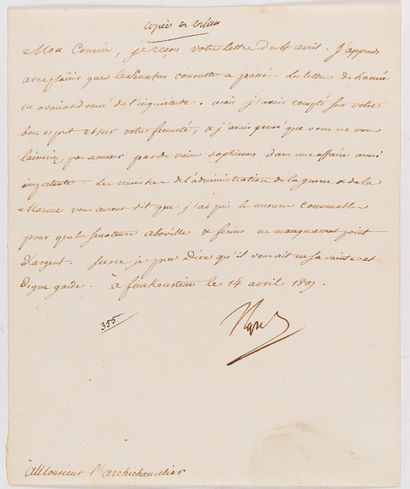 copiée en
Mon Cousin, je reçois votre lettre du 4 avril. J'apprends
avec plaisir que le Senatus consulte a passé. La lettre de
m'avaient donné de l'inquiétude. mais j'avais compté sur votre
bon esprit et sur votre fermeté, & j'avais pensé que vous ne vous
laisseriez pas amuser par de vains sophismes dans une affaire aussi
importante. Les ministres de l'administration de la guerre & de la
Marine vous auront dit que j'ai pris les mesures convenables
pour que les Senateurs Aboville & ferino ne manquassent point
d'argent. Sur ce je prie Dieu qu'il vous ait en sa sainte et
digne garde. à finckenstein le 14 avril 1807.
355
Nap
à Monsieur l'archichancelier